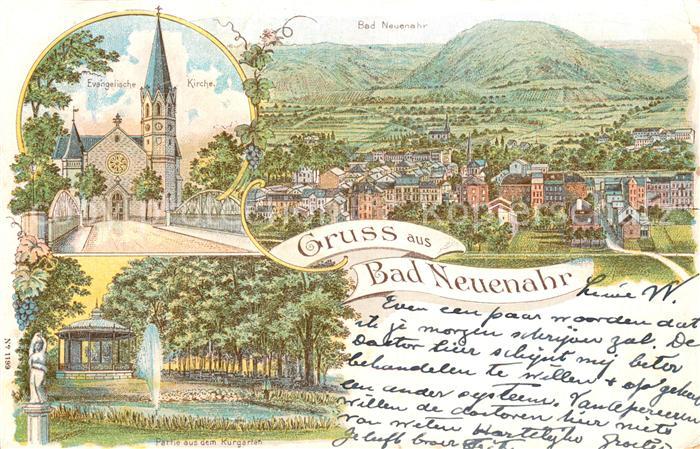 Bad Neuenahr
Evangelische Kirche.
Gruss aus
Bad Neuenahr
Partie aus dem Kurgarten
No 1199
Lieve W.
Even een paar woorden dat
ik je morgen schrijven zal. De
Doctor hier schijnt mij beter
behandelen te willen + op geheel
een ander systeem. Van
willen de doctoren hier niets
van weten Hartelijke Groeten
je liefh